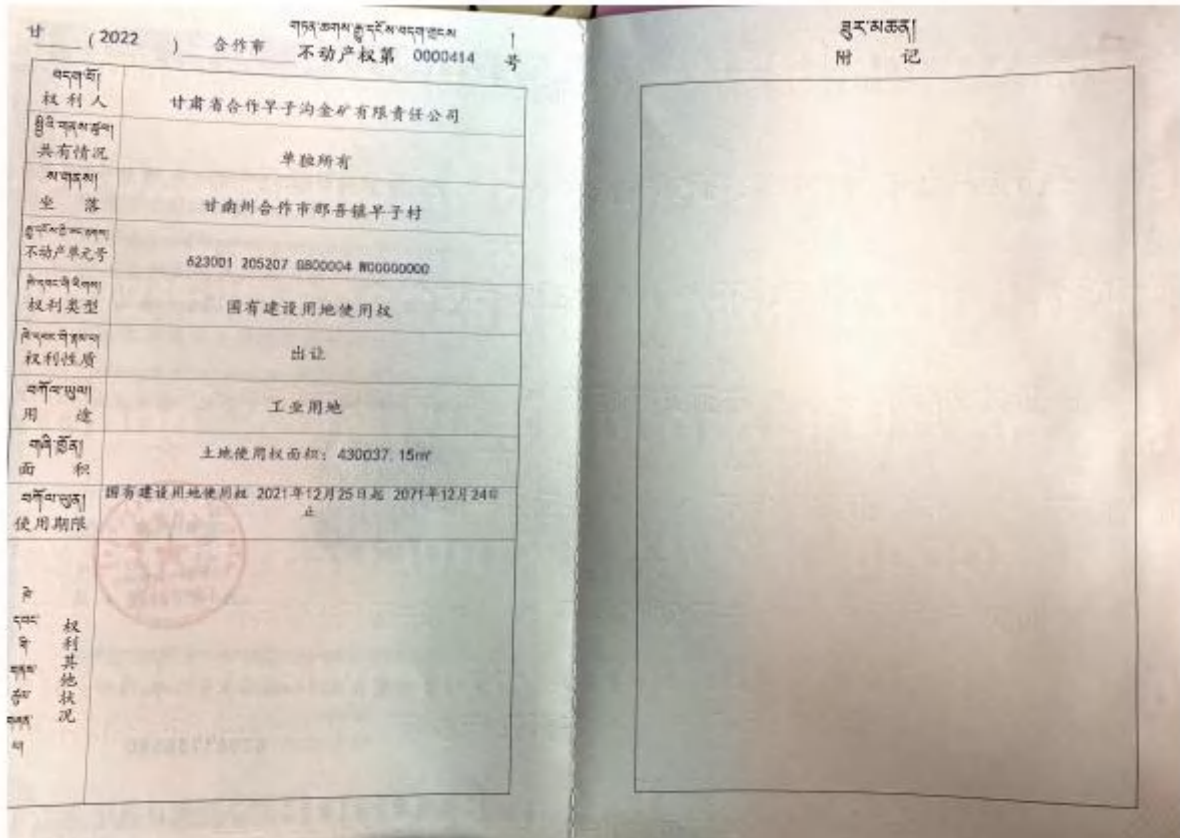 གཏན་ཆགས་རྒྱུ་དངོས་བདག་གྲངས
甘 (2022) 合作市 不动产权第 0000414 号
བདག་པོ།
权利人 甘肃省合作早子沟金矿有限责任公司
共有情况 单独所有
ས་གནས།
坐落 甘南州合作市那吾镇早子村
不动产单元号 623001 205207 GB00004 W00000000
权利类型 国有建设用地使用权
权利性质 出让
བཀོལ་ཡུལ།
用途 工业用地
གཞི་ཁྱོན།
面积 土地使用权面积：430037.15㎡
བཀོལ་ཡུན།
使用期限 国有建设用地使用权 2021年12月25日起 2071年12月24日
止
权利其他状况
ཟུར་མཆན།
附记